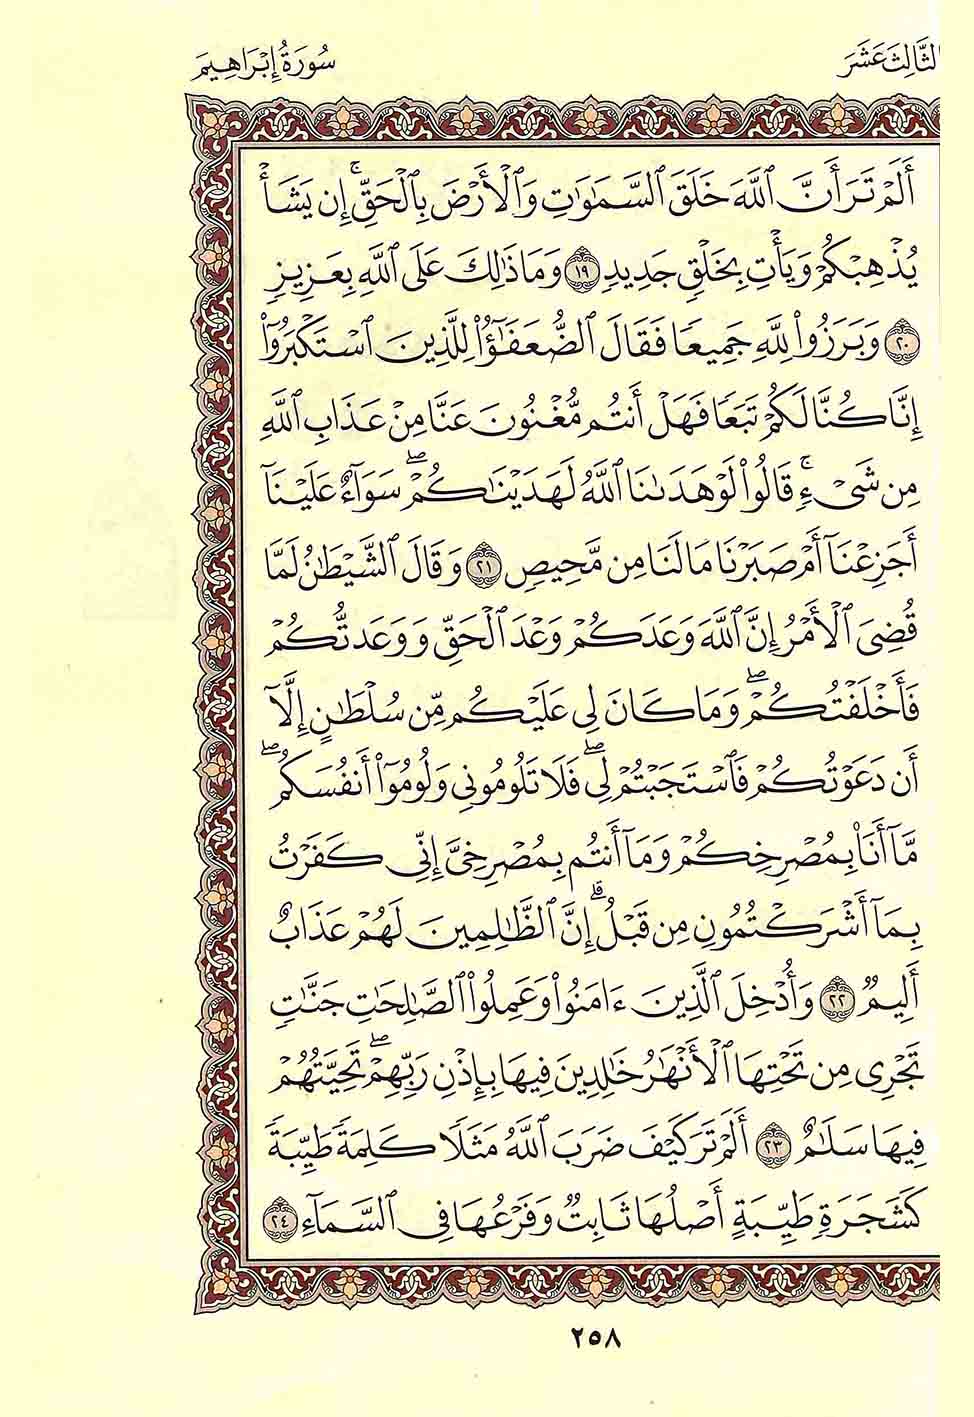 الثَّالِثَ عَشَرَ
سُورَةُ إِبْرَاهِيمَ
أَلَمْ تَرَ أَنَّ ٱللَّهَ خَلَقَ ٱلسَّمَٰوَٰتِ وَٱلْأَرْضَ بِٱلْحَقِّ ۚ إِن يَشَأْ
يُذْهِبْكُمْ وَيَأْتِ بِخَلْقٍ جَدِيدٍ ١٩ وَمَا ذَٰلِكَ عَلَى ٱللَّهِ بِعَزِيزٍ
٢٠ وَبَرَزُوا۟ لِلَّهِ جَمِيعًا فَقَالَ ٱلضُّعَفَٰٓؤُا۟ لِلَّذِينَ ٱسْتَكْبَرُوٓا۟
إِنَّا كُنَّا لَكُمْ تَبَعًا فَهَلْ أَنتُم مُّغْنُونَ عَنَّا مِنْ عَذَابِ ٱللَّهِ
مِن شَىْءٍ ۚ قَالُوا۟ لَوْ هَدَىٰنَا ٱللَّهُ لَهَدَيْنَٰكُمْ ۖ سَوَآءٌ عَلَيْنَآ
أَجَزِعْنَآ أَمْ صَبَرْنَا مَا لَنَا مِن مَّحِيصٍ ٢١ وَقَالَ ٱلشَّيْطَٰنُ لَمَّا
قُضِىَ ٱلْأَمْرُ إِنَّ ٱللَّهَ وَعَدَكُمْ وَعْدَ ٱلْحَقِّ وَوَعَدتُّكُمْ
فَأَخْلَفْتُكُمْ ۖ وَمَا كَانَ لِىَ عَلَيْكُم مِّن سُلْطَٰنٍ إِلَّآ
أَن دَعَوْتُكُمْ فَٱسْتَجَبْتُمْ لِى ۖ فَلَا تَلُومُونِى وَلُومُوٓا۟ أَنفُسَكُم ۖ
مَّآ أَنَا۠ بِمُصْرِخِكُمْ وَمَآ أَنتُم بِمُصْرِخِىَّ إِنِّى كَفَرْتُ
بِمَآ أَشْرَكْتُمُونِ مِن قَبْلُ ۗ إِنَّ ٱلظَّٰلِمِينَ لَهُمْ عَذَابٌ
أَلِيمٌ ٢٢ وَأُدْخِلَ ٱلَّذِينَ ءَامَنُوا۟ وَعَمِلُوا۟ ٱلصَّٰلِحَٰتِ جَنَّٰتٍ
تَجْرِى مِن تَحْتِهَا ٱلْأَنْهَٰرُ خَٰلِدِينَ فِيهَا بِإِذْنِ رَبِّهِمْ ۖ تَحِيَّتُهُمْ
فِيهَا سَلَٰمٌ ٢٣ أَلَمْ تَرَ كَيْفَ ضَرَبَ ٱللَّهُ مَثَلًا كَلِمَةً طَيِّبَةً
كَشَجَرَةٍ طَيِّبَةٍ أَصْلُهَا ثَابِتٌ وَفَرْعُهَا فِى ٱلسَّمَآءِ ٢٤
٢٥٨